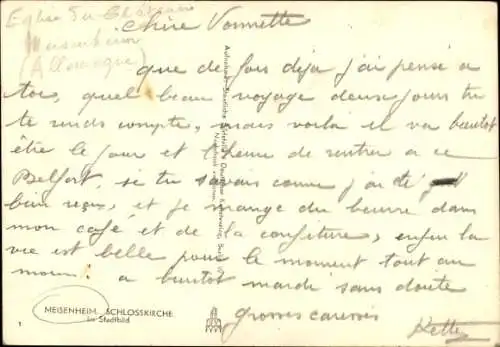 Eglise du Château
Meisenheim
(Allemagne)
Chère Vonnette
que de fois deja j'ai pensé a
toi, quel beau voyage deux jours tu
te rends compte, mais voila il va bientot
être le jour et l'heure de rentrer a ce
Belfort, si tu savais comme j'ai été
bien reçue, et je mange du beurre dans
mon café et de la confiture, enfin la
vie est belle pour le moment tout au
moins a bientot mardi sans doute
grosses caresses
Ketty
MEISENHEIM, SCHLOSSKIRCHE
im Stadtbild
1